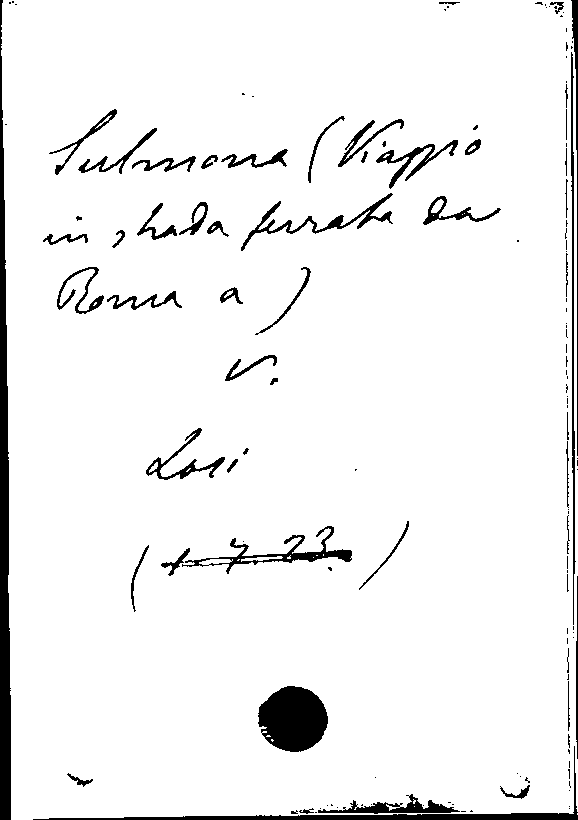 Sulmona (Viaggio
in strada ferrata da
Roma a )
V.
Losi
( 1. 7. 23. )